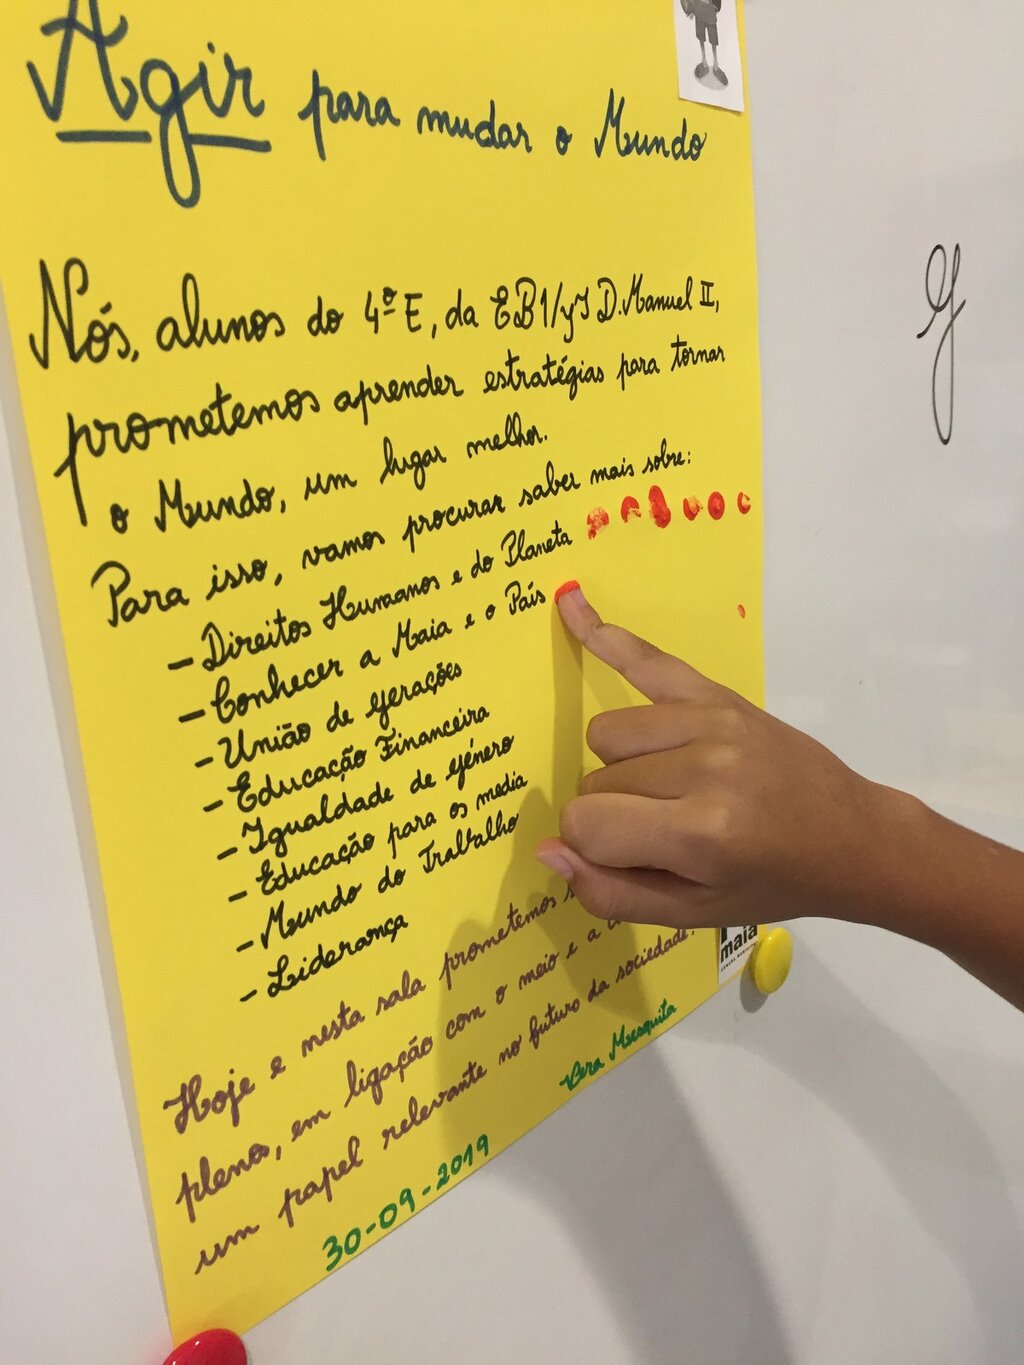 Agir para mudar o Mundo
Nós, alunos do 4º E, da EB1/JI D. Manuel II,
prometemos aprender estratégias para tornar
o Mundo, um lugar melhor.
Para isso, vamos procurar saber mais sobre:
- Direitos Humanos e do Planeta
- Conhecer a Maia e o País
- União de Gerações
- Educação Financeira
- Igualdade de Género
- Educação para os media
- Mundo do Trabalho
- Liderança
Hoje e nesta sala prometemos s
plenos, em ligação com o meio e a c
um papel relevante no futuro da sociedade.
Vera Mesquita
30-09-2019
maia
G